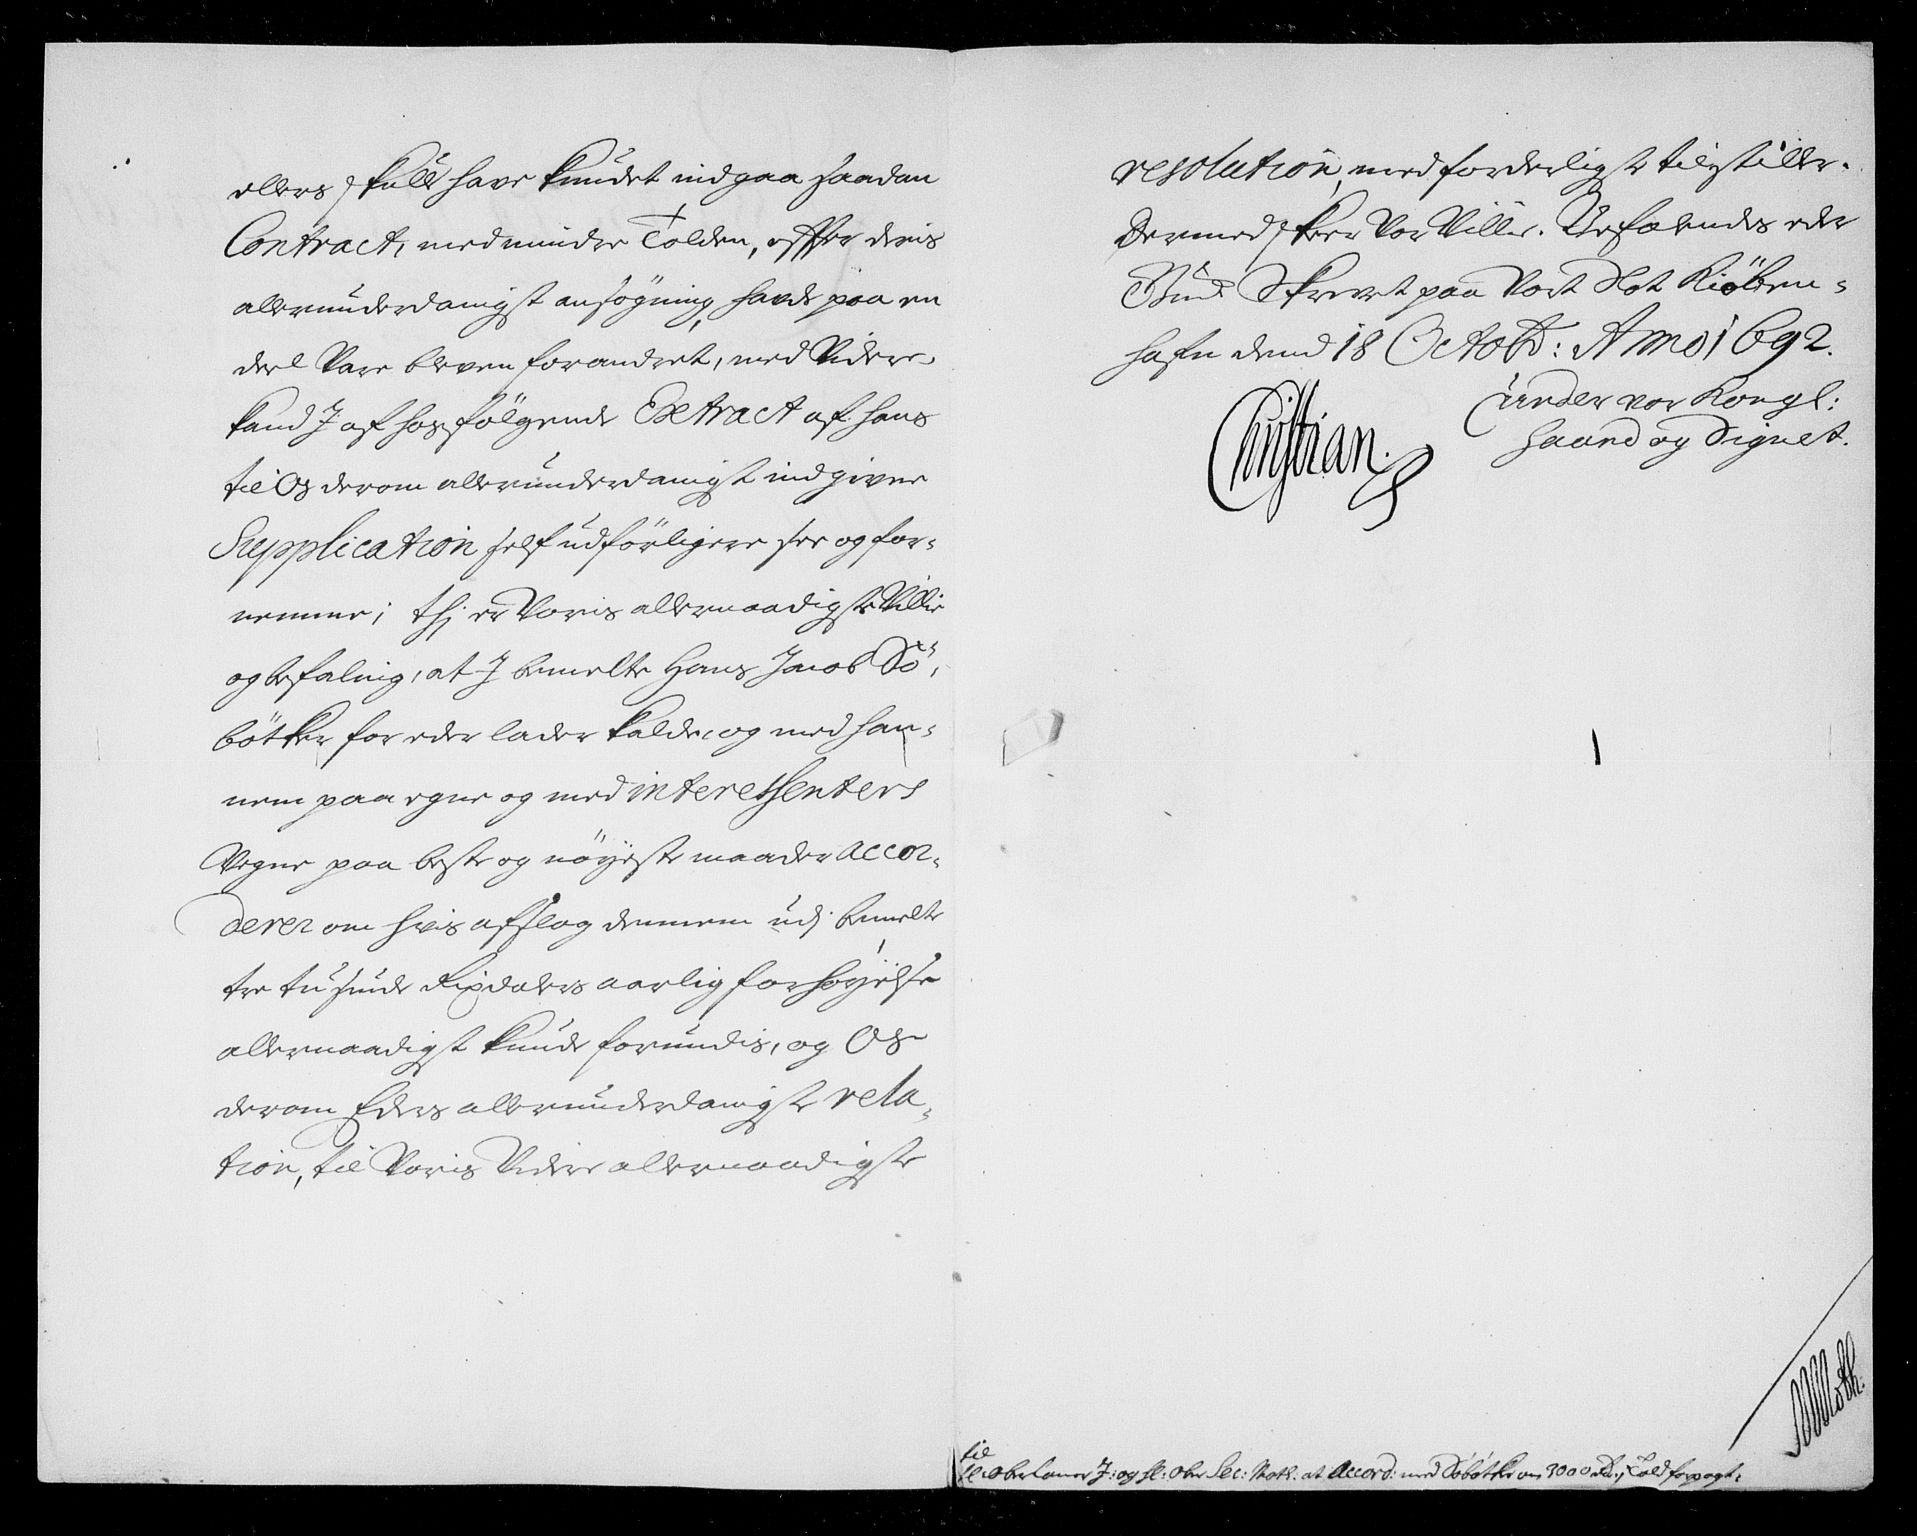 ellers skulle have kundet indgaa saadan
Contract, med mindre Tolden, efter deris
allerunderdanigst ansögning, hafde paa en
deel Vare bleven forandret, med Videre,
kand J af hosfölgende Extract af hans
til Os derom allerunderdanigst indgivne
Supplication self udförligere see og for-
nemme; thi er Voris allernaadigste Villie
og befaling, at J bemelte Hans Jacob Sö-
bötker for eder lader kalde, og med han-
nem paa egne og med interessenters
Vegne paa beste og nöyeste maader accor-
derer om hvis afslag dennem udj bemelte
tre tusinde Rixdalers aarlig forhöyelse
allernaadigst kunde forundis, og Os
derom Eders allerunderdanigste rela-
tion, til Voris Videre allernaadigste
resolution, med forderligst tilstiller.
Dermed skeer Vor Villie. Befalendes eder
Gud. Skrevet paa Vort Slot Kiöben-
hafn dend 18 Octobr: Anno 1692.
Under vor Kongl:
haand og Signet.
Christian.
MMoth.
til
og Hr: Ober Sec: Moth: at Accord: med Söbötker om 3000 Rdr: Told forpagt: